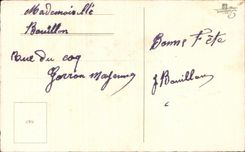 Mademoiselle
Bouillon
Rue du coq
Gorron Mayenne
Bonne Fête
J Bouillon